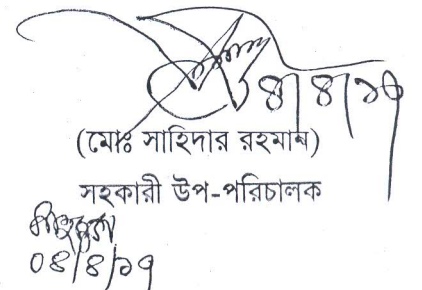 ৪/৪/১৭
(মোঃ সাহিদার রহমান)
সহকারী উপ-পরিচালক
০৪/৪/১৭